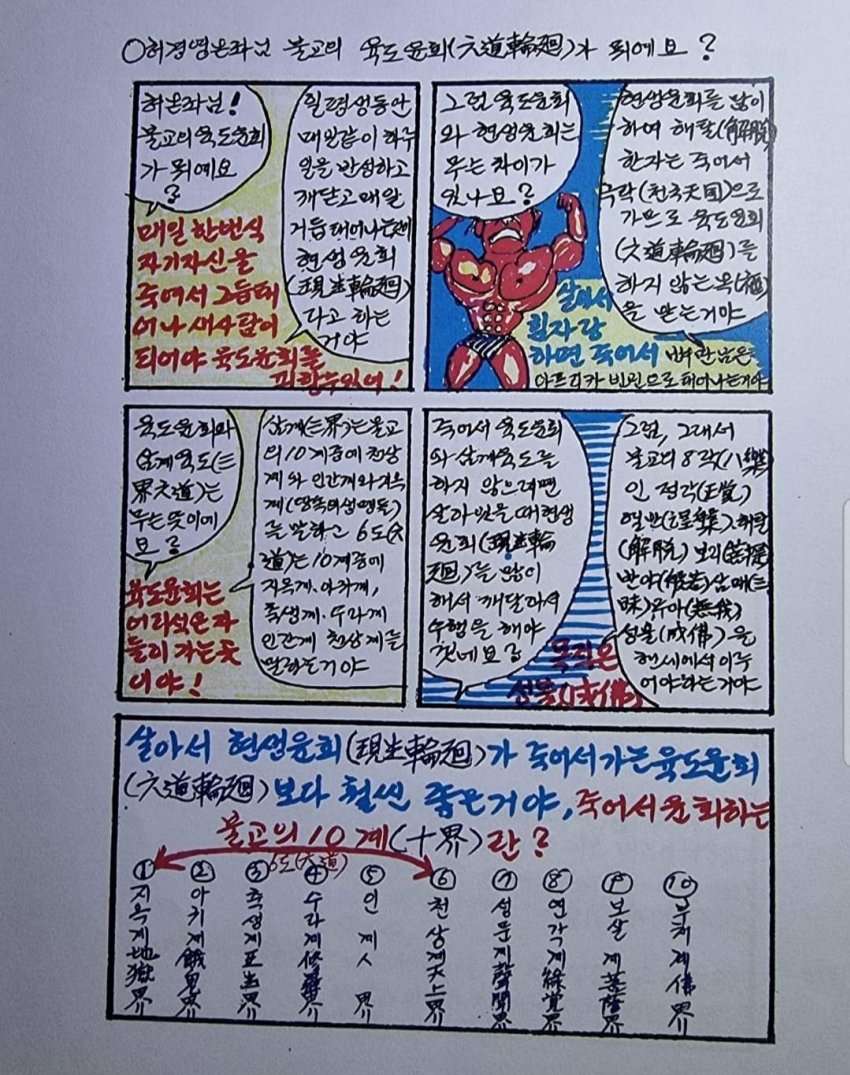 ○허경영은좌님 불교의 육도윤회(六道輪廻)가 뭐에요?
허은좌님!
불교의육도윤회
가 뭐예요
?
일평생동안
매일같이 하루
일을 반성하고
깨닫고 매일
거듭 태어나는것이
현생윤회
(現生輪廻)
라고 하는
거야
매일 한번식
자기자신을
죽여서 그듭태
어나 새사람이
되어야 육도윤회를
피할수있어!
그럼 육도윤회
와 현생윤회는
무슨 차이가
있나요?
현생윤회를 많이
하여 해탈(解脫)
한자는 죽어서
극락(천국天国)으로
가므로 육도윤회
(六道輪廻)를
하지 않는 복(福)
을 받는거야
살아서
힘자랑
하면 죽어서
아프리카 빈민으로 태어나는거야
육도윤회와
삼계육도(三
界六道)는
무슨 뜻이에
요?
삼계(三界)는 불교
의 10계중에 천상
계와 인간계와 지옥
계(땅속의생명등)
를 말하고 6도(六
道)는 10계중에
지옥계, 아귀계,
축생계, 수라계
인간계 천상계를
말하는거야
육도윤회는
어리석은자
들이 가는곳
이야!
죽어서 육도윤회
와 삼계육도를
하지 않으려면
살아있을때현생
윤회(現生輪
廻)를 많이
해서 깨달아서
수행을 해야
겟네요?
그럼, 그래서
불교의 8락(八樂)
인 정각(正覚)
열반(涅槃), 해탈
(解脫) 보리(菩提)
반야(般若) 삼매(三
昧) 무아(無我)
성불(成佛)을
현세에서 이루
어야하는거야
목적은
성불(成佛)
살아서 현생윤회(現生輪廻)가 죽어서가는육도윤회
(六道輪廻)보다 훨씬 좋은거야, 죽어서윤회하는
불교의 10계(十界)란?
6도(六道)
① 지옥계地獄界
② 아귀계餓鬼界
③ 축생계畜生界
④ 수라계修羅界
⑤ 인계人界
⑥ 천상계天上界
⑦ 성문계聲聞界
⑧ 연각계緣覚界
⑨ 보살계菩薩界
⑩ 부처계佛界